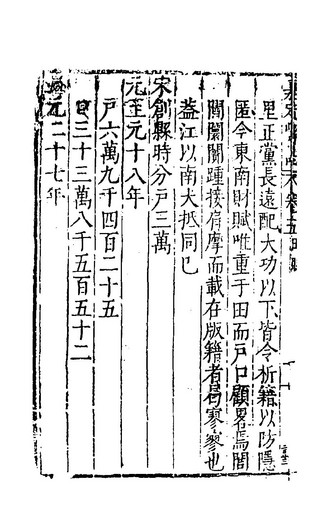 里正黨長遠配大功以下皆令析籍以防隱
匿今東南財賦唯重于田而戶口顧畧焉閭
閻闤闠踵接肩摩而載在版籍者曷寥寥也
葢江以南大抵同已
宋創縣時分戶三萬
元至元十八年
戶六萬九千四百二十五
口三十三萬八千五百五十二
至元二十七年